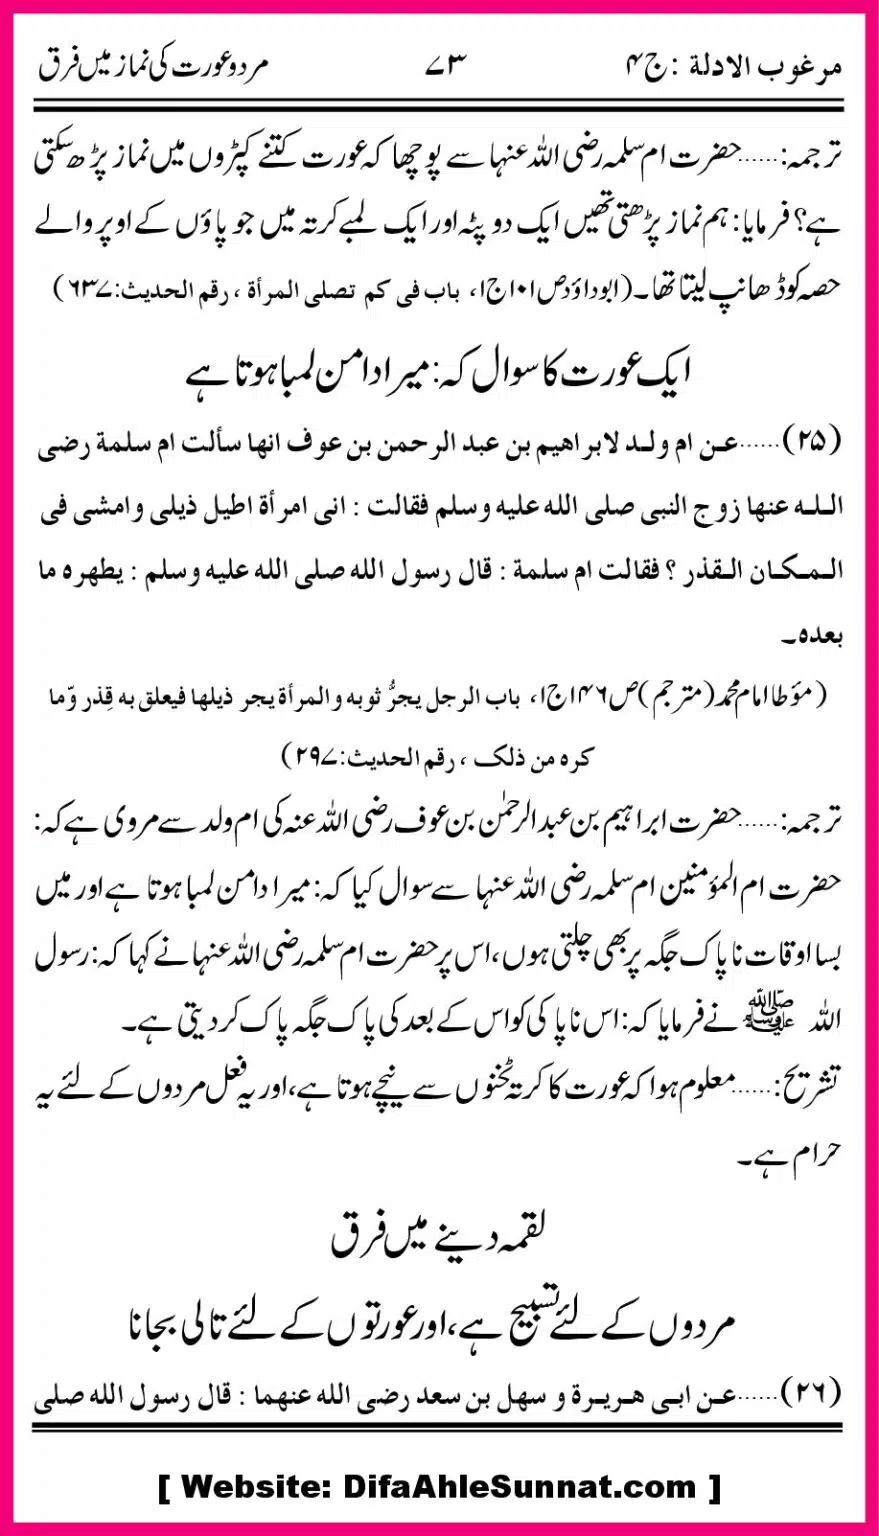 مرغوب الادلة : ج ۴ ۷۳ مرد و عورت کی نماز میں فرق
ترجمہ:......حضرت ام سلمہ رضی اللہ عنہا سے پوچھا کہ عورت کتنے کپڑوں میں نماز پڑھ سکتی
ہے؟ فرمایا: ہم نماز پڑھتی تھیں ایک دوپٹہ اور ایک لمبے کرتہ میں جو پاؤں کے اوپر والے
حصہ کو ڈھانپ لیتا تھا۔(ابوداؤد ص ۱۰۱ ج ا، باب فی کم تصلی المرأة ، رقم الحدیث:۶۳۷)
ایک عورت کا سوال کہ: میرا دامن لمبا ہوتا ہے
(۲۵)......عن ام ولد لابراهیم بن عبد الرحمن بن عوف انها سألت ام سلمة رضی
الله عنها زوج النبی صلی الله علیه وسلم فقالت : انی امرأة اطیل ذیلی وامشی فی
المکان القذر ؟ فقالت ام سلمة : قال رسول الله صلی الله علیه وسلم : یطهره ما
بعده۔
(مؤطا امام محمد (مترجم) ص ۱۴۶ ج ا، باب الرجل یجرُّ ثوبه و المرأة یجر ذیلها فیعلق به قِذر وّما
کره من ذلک ، رقم الحدیث:۲۹۷)
ترجمہ:......حضرت ابراہیم بن عبد الرحمٰن بن عوف رضی اللہ عنہ کی ام ولد سے مروی ہے کہ:
حضرت ام المؤمنین ام سلمہ رضی اللہ عنہا سے سوال کیا کہ: میرا دامن لمبا ہوتا ہے اور میں
بسا اوقات ناپاک جگہ پر بھی چلتی ہوں، اس پر حضرت ام سلمہ رضی اللہ عنہا نے کہا کہ: رسول
اللہ ﷺ نے فرمایا کہ: اس ناپاکی کو اس کے بعد کی پاک جگہ پاک کر دیتی ہے۔
تشریح:......معلوم ہوا کہ عورت کا کرتہ ٹخنوں سے نیچے ہوتا ہے، اور یہ فعل مردوں کے لئے یہ
حرام ہے۔
لقمہ دینے میں فرق
مردوں کے لئے تسبیح ہے، اور عورتوں کے لئے تالی بجانا
(۲۶)......عن ابی هریرة و سهل بن سعد رضی الله عنهما : قال رسول الله صلی
[ Website: DifaAhleSunnat.com ]